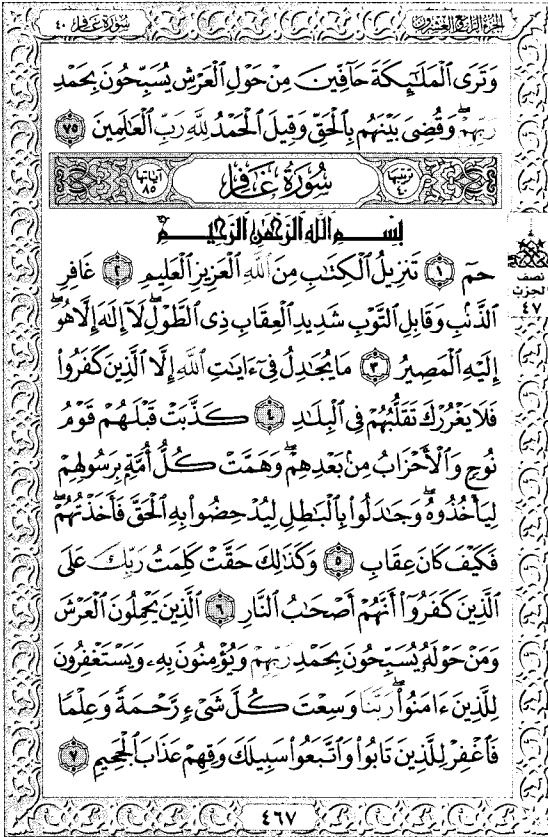 الجزء الرابع والعشرون
سورة غافر ٤٠
وَتَرَى ٱلْمَلَٰٓئِكَةَ حَآفِّينَ مِنْ حَوْلِ ٱلْعَرْشِ يُسَبِّحُونَ بِحَمْدِ
رَبِّهِمْ ۖ وَقُضِىَ بَيْنَهُم بِٱلْحَقِّ وَقِيلَ ٱلْحَمْدُ لِلَّهِ رَبِّ ٱلْعَٰلَمِينَ ٧٥
ترتيبها ٤٠ سُورَةُ غَافِرٍ آياتها ٨٥
بِسْمِ ٱللَّهِ ٱلرَّحْمَٰنِ ٱلرَّحِيمِ
حمٓ ١ تَنزِيلُ ٱلْكِتَٰبِ مِنَ ٱللَّهِ ٱلْعَزِيزِ ٱلْعَلِيمِ ٢ غَافِرِ
ٱلذَّنۢبِ وَقَابِلِ ٱلتَّوْبِ شَدِيدِ ٱلْعِقَابِ ذِى ٱلطَّوْلِ ۖ لَآ إِلَٰهَ إِلَّا هُوَ ۖ
إِلَيْهِ ٱلْمَصِيرُ ٣ مَا يُجَٰدِلُ فِىٓ ءَايَٰتِ ٱللَّهِ إِلَّا ٱلَّذِينَ كَفَرُوا۟
فَلَا يَغْرُرْكَ تَقَلُّبُهُمْ فِى ٱلْبِلَٰدِ ٤ كَذَّبَتْ قَبْلَهُمْ قَوْمُ
نُوحٍ وَٱلْأَحْزَابُ مِنۢ بَعْدِهِمْ ۖ وَهَمَّتْ كُلُّ أُمَّةٍۭ بِرَسُولِهِمْ
لِيَأْخُذُوهُ ۖ وَجَٰدَلُوا۟ بِٱلْبَٰطِلِ لِيُدْحِضُوا۟ بِهِ ٱلْحَقَّ فَأَخَذْتُهُمْ ۖ
فَكَيْفَ كَانَ عِقَابِ ٥ وَكَذَٰلِكَ حَقَّتْ كَلِمَتُ رَبِّكَ عَلَى
ٱلَّذِينَ كَفَرُوٓا۟ أَنَّهُمْ أَصْحَٰبُ ٱلنَّارِ ٦ ٱلَّذِينَ يَحْمِلُونَ ٱلْعَرْشَ
وَمَنْ حَوْلَهُۥ يُسَبِّحُونَ بِحَمْدِ رَبِّهِمْ وَيُؤْمِنُونَ بِهِۦ وَيَسْتَغْفِرُونَ
لِلَّذِينَ ءَامَنُوا۟ ۖ رَبَّنَا وَسِعْتَ كُلَّ شَىْءٍ رَّحْمَةً وَعِلْمًا
فَٱغْفِرْ لِلَّذِينَ تَابُوا۟ وَٱتَّبَعُوا۟ سَبِيلَكَ وَقِهِمْ عَذَابَ ٱلْجَحِيمِ ٧
نصف
الحزب
٤٧
٤٦٧